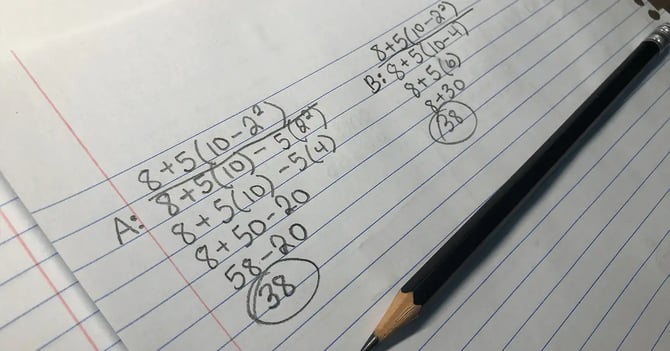 8+5(10-2²)
A: 8+5(10)-5(2²)
8+5(10)-5(4)
8+50-20
58-20
38
8+5(10-2²)
B: 8+5(10-4)
8+5(6)
8+30
38